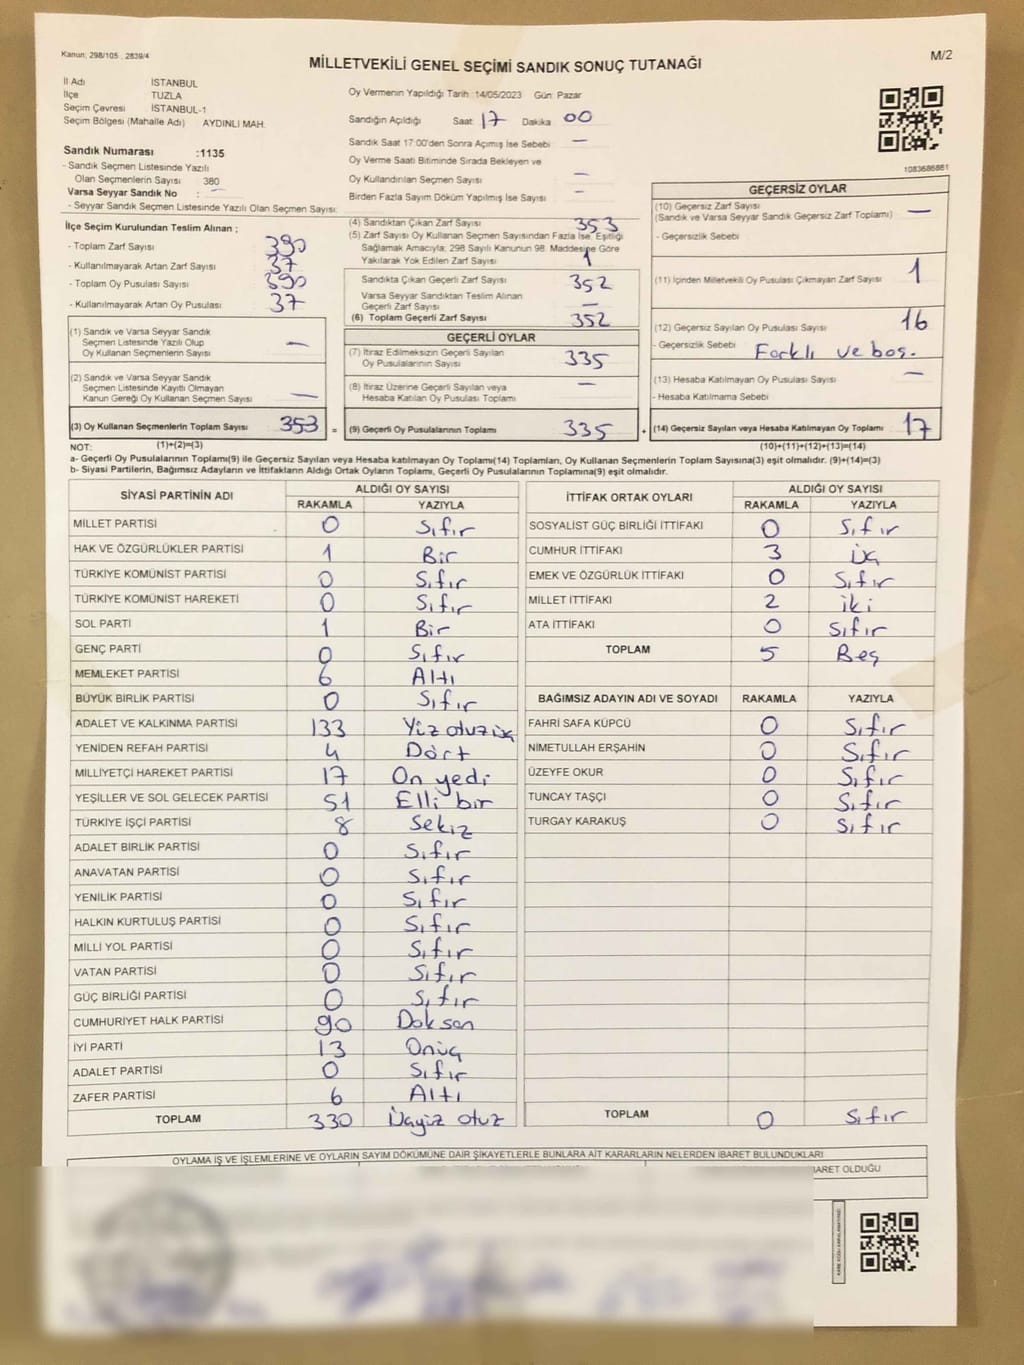 Kanun; 298/105 , 2839/4
M/2
MİLLETVEKİLİ GENEL SEÇİMİ SANDIK SONUÇ TUTANAĞI
İl Adı İSTANBUL
İlçe TUZLA
Seçim Çevresi İSTANBUL-1
Seçim Bölgesi (Mahalle Adı) AYDINLI MAH.
Sandık Numarası :1135
- Sandık Seçmen Listesinde Yazılı
Olan Seçmenlerin Sayısı 380
Varsa Seyyar Sandık No : —
- Seyyar Sandık Seçmen Listesinde Yazılı Olan Seçmen Sayısı:
İlçe Seçim Kurulundan Teslim Alınan ;
- Toplam Zarf Sayısı 390
- Kullanılmayarak Artan Zarf Sayısı 37
- Toplam Oy Pusulası Sayısı 390
- Kullanılmayarak Artan Oy Pusulası 37
(1) Sandık ve Varsa Seyyar Sandık
Seçmen Listesinde Yazılı Olup
Oy Kullanan Seçmenlerin Sayısı —
(2) Sandık ve Varsa Seyyar Sandık
Seçmen Listesinde Kayıtlı Olmayan
Kanun Gereği Oy Kullanan Seçmen Sayısı —
(3) Oy Kullanan Seçmenlerin Toplam Sayısı 353 =
(1)+(2)=(3)
Oy Vermenin Yapıldığı Tarih :14/05/2023 Gün: Pazar
Sandığın Açıldığı Saat: 17 Dakika: 00
Sandık Saat 17:00'den Sonra Açımış İse Sebebi —
Oy Verme Saati Bitiminde Sırada Bekleyen ve
Oy Kullandırılan Seçmen Sayısı —
Birden Fazla Sayım Döküm Yapılmış İse Sayısı —
(4) Sandıktan Çıkan Zarf Sayısı 353
(5) Zarf Sayısı Oy Kullanan Seçmen Sayısından Fazla İse, Eşitliği
Sağlamak Amacıyla; 298 Sayılı Kanunun 98. Maddesine Göre
Yakılarak Yok Edilen Zarf Sayısı 1
Sandıkta Çıkan Geçerli Zarf Sayısı 352
Varsa Seyyar Sandıktan Teslim Alınan
Geçerli Zarf Sayısı —
(6) Toplam Geçerli Zarf Sayısı 352
GEÇERLİ OYLAR
(7) İtiraz Edilmeksizin Geçerli Sayılan
Oy Pusulalarının Sayısı 335
(8) İtiraz Üzerine Geçerli Sayılan veya
Hesaba Katılan Oy Pusulası Toplamı —
(9) Geçerli Oy Pusulalarının Toplamı 335 +
1083686861
GEÇERSİZ OYLAR
(10) Geçersiz Zarf Sayısı
(Sandık ve Varsa Seyyar Sandık Geçersiz Zarf Toplamı) —
- Geçersizlik Sebebi
(11) İçinden Milletvekili Oy Pusulası Çıkmayan Zarf Sayısı 1
(12) Geçersiz Sayılan Oy Pusulası Sayısı 16
- Geçersizlik Sebebi Farklı ve boş.
(13) Hesaba Katılmayan Oy Pusulası Sayısı —
- Hesaba Katılmama Sebebi
(14) Geçersiz Sayılan veya Hesaba Katılmayan Oy Toplamı 17
(10)+(11)+(12)+(13)=(14)
NOT:
a- Geçerli Oy Pusulalarının Toplamı(9) ile Geçersiz Sayılan veya Hesaba katılmayan Oy Toplamı(14) Toplamları, Oy Kullanan Seçmenlerin Toplam Sayısına(3) eşit olmalıdır. (9)+(14)=(3)
b- Siyasi Partilerin, Bağımsız Adayların ve İttifakların Aldığı Ortak Oyların Toplamı, Geçerli Oy Pusulalarının Toplamına(9) eşit olmalıdır.
SİYASİ PARTİNİN ADI ALDIĞI OY SAYISI
RAKAMLA YAZIYLA
MİLLET PARTİSİ 0 Sıfır
HAK VE ÖZGÜRLÜKLER PARTİSİ 1 Bir
TÜRKİYE KOMÜNİST PARTİSİ 0 Sıfır
TÜRKİYE KOMÜNİST HAREKETİ 0 Sıfır
SOL PARTİ 1 Bir
GENÇ PARTİ 0 Sıfır
MEMLEKET PARTİSİ 6 Altı
BÜYÜK BİRLİK PARTİSİ 0 Sıfır
ADALET VE KALKINMA PARTİSİ 133 Yüz otuz üç
YENİDEN REFAH PARTİSİ 4 Dört
MİLLİYETÇİ HAREKET PARTİSİ 17 On yedi
YEŞİLLER VE SOL GELECEK PARTİSİ 51 Elli bir
TÜRKİYE İŞÇİ PARTİSİ 8 Sekiz
ADALET BİRLİK PARTİSİ 0 Sıfır
ANAVATAN PARTİSİ 0 Sıfır
YENİLİK PARTİSİ 0 Sıfır
HALKIN KURTULUŞ PARTİSİ 0 Sıfır
MİLLİ YOL PARTİSİ 0 Sıfır
VATAN PARTİSİ 0 Sıfır
GÜÇ BİRLİĞİ PARTİSİ 0 Sıfır
CUMHURİYET HALK PARTİSİ 90 Doksan
İYİ PARTİ 13 Onüç
ADALET PARTİSİ 0 Sıfır
ZAFER PARTİSİ 6 Altı
TOPLAM 330 Üçyüz otuz
İTTİFAK ORTAK OYLARI ALDIĞI OY SAYISI
RAKAMLA YAZIYLA
SOSYALİST GÜÇ BİRLİĞİ İTTİFAKI 0 Sıfır
CUMHUR İTTİFAKI 3 üç
EMEK VE ÖZGÜRLÜK İTTİFAKI 0 Sıfır
MİLLET İTTİFAKI 2 iki
ATA İTTİFAKI 0 Sıfır
TOPLAM 5 Beş
BAĞIMSIZ ADAYIN ADI VE SOYADI RAKAMLA YAZIYLA
FAHRİ SAFA KÜPCÜ 0 Sıfır
NİMETULLAH ERŞAHİN 0 Sıfır
ÜZEYFE OKUR 0 Sıfır
TUNCAY TAŞÇI 0 Sıfır
TURGAY KARAKUŞ 0 Sıfır
TOPLAM 0 Sıfır
OYLAMA İŞ VE İŞLEMLERİNE VE OYLARIN SAYIM DÖKÜMÜNE DAİR ŞİKAYETLERLE BUNLARA AİT KARARLARIN NELERDEN İBARET BULUNDUKLARI
BARET OLDUĞU